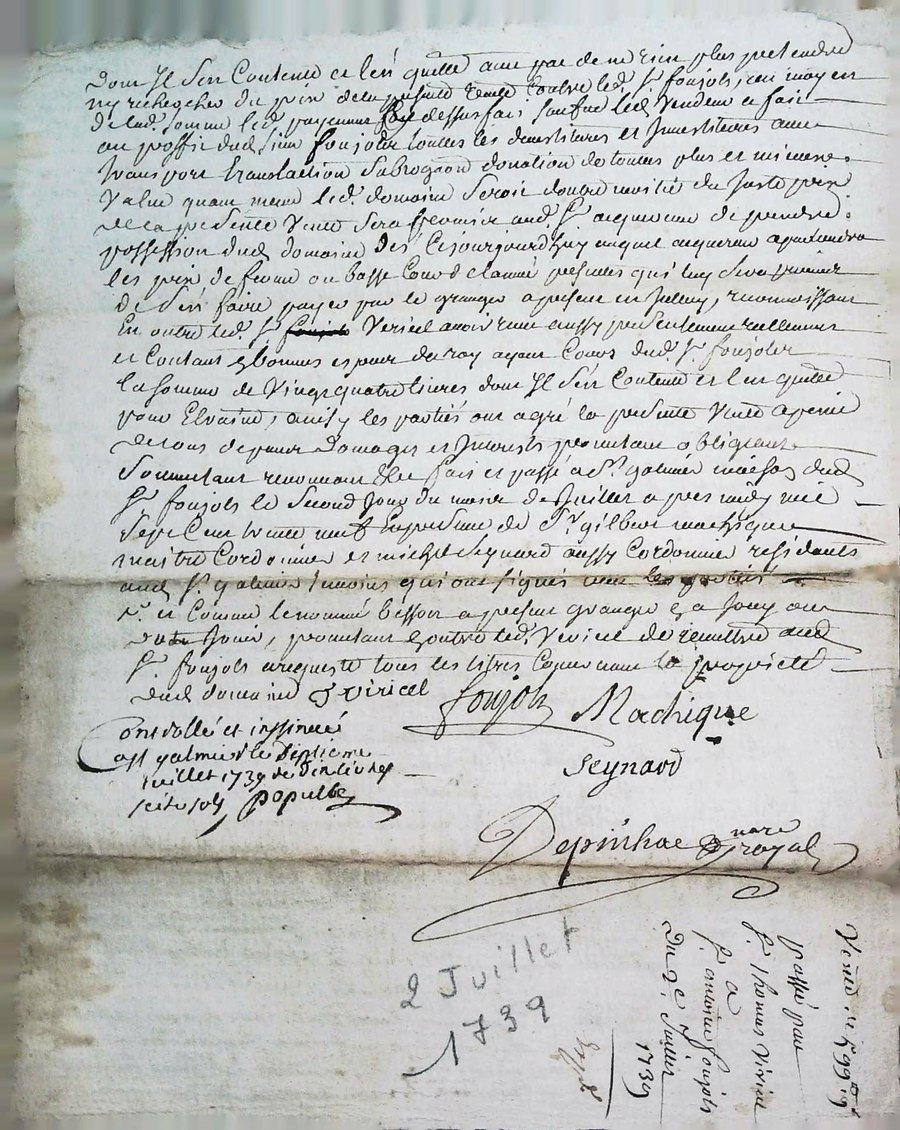 dont Il s'en Contente et l'en quitte avec pac de ne rien plus pretendre
ny rechercher du prix de la presente Vente Contre led. Sr. foujols, au moyen
de lad. somme led. payement dessus fait led. Vendeur a fait
au proffit dud. Sieur foujols toutes les demettitures et Investitures avec
transport translaction subrogaon donation de toutes plus et moins
Value quant meme led. domaine seroit doutre moitié du Juste prix
de la presente Vente sera permis aud. Sr. acquereur de prendre
possession dud. domaine des Cejourjourdhuy auquel acquereur apartiendra
les prix de ferme ou basse Cour de lannée presente qu'il luy sera permis
de s'en faire payer par le granger a present en Jceluy, reconnoissant
En outre led. Sr. Viricel avoir reeu aussy presentement reellement
et Contant bonnes especes du roy ayant Cours dud. Sr. foujols
la somme de Vingt quatre livres dont Il s'en Contente et l'en quitte
pour Etraine, ainsy les parties ont agré la presente Vente a peine
de tous depens domages et Interests promettant obligeant
Soumettant renonceant fait et passé a St. galmier maison dud.
Sr. foujols le second Jour du mois de Juillet apres midy mil
sept Cent trente neuf En presence de Sr. gilbert machique
maitre Cordonnier et michel seynard aussy Cordonnier residants
aud. St. galmier temoins qui ont signés avec les parties
et Comme le nommé besson a present granger a Jouy ou
du Jouir, promettant En outre led. Viricel de remettre aud.
Sr. foujols a requeste tous les titres Concernant la propriete
dud. domaine Viricel
foujols Machique
Controllé et insinué
a st galmier le septieme
Juillet 1739 Seynard
seize sols
Depinhac nore royal
2 Juillet
1739
Vente
passé par
Sr. thomas Viricel
a
Sr. antoine foujols
Du 2e Juillet
1739